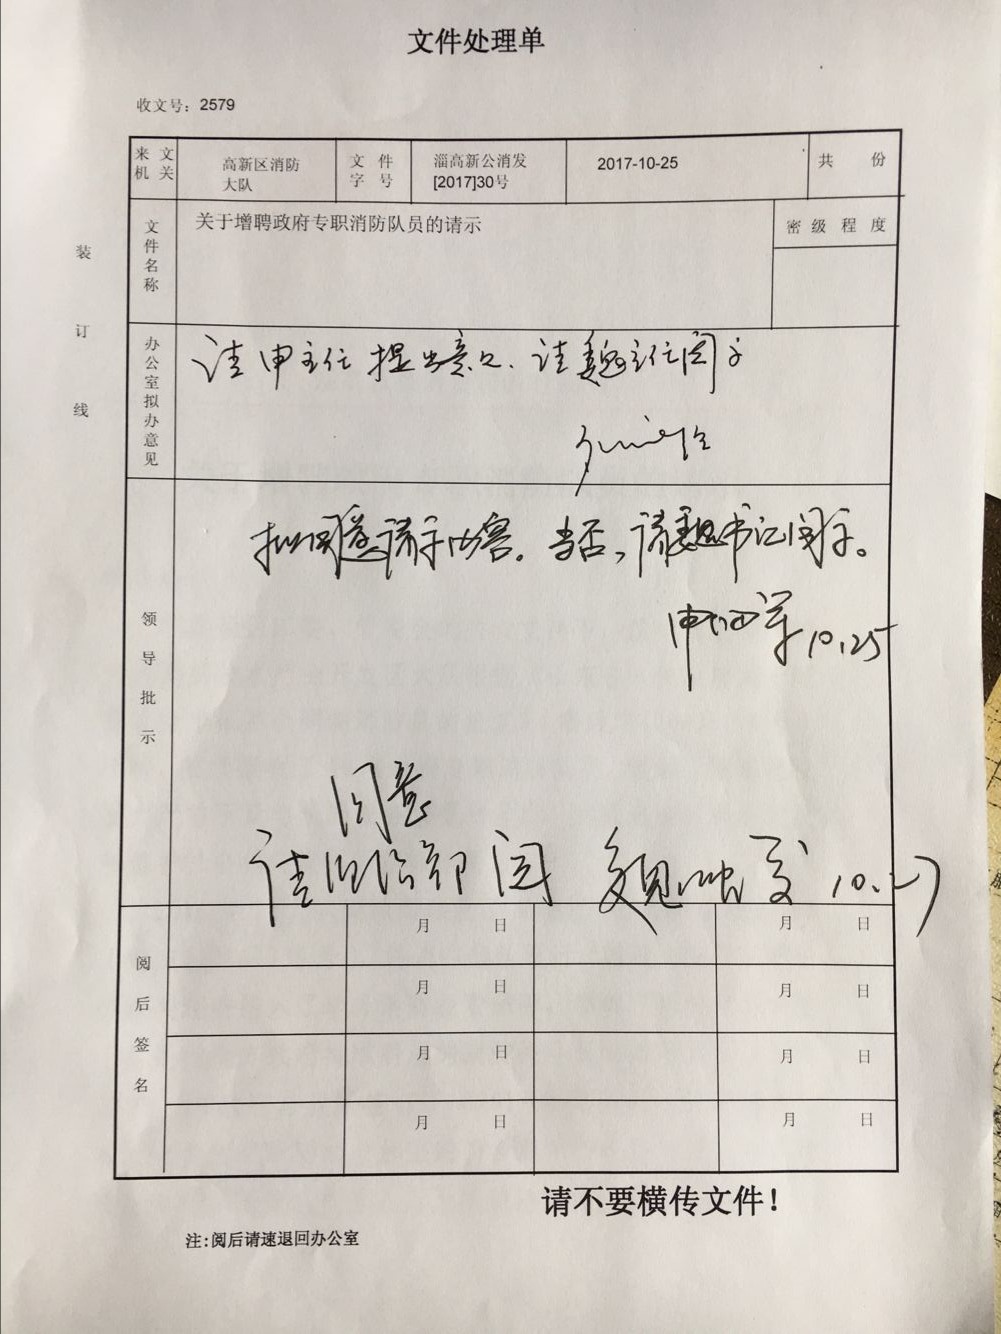 文件处理单
收文号：2579
来文机关
高新区消防大队
文件字号
淄高新公消发[2017]30号
2017-10-25
共 份
文件名称
关于增聘政府专职消防队员的请示
密级程度
装订线
办公室拟办意见
请申主任提出意见、请魏主任阅示
领导批示
拟同意请示内容。当否，请魏书记阅示。
申 军 10.25
同意
请 部阅 魏 10.27
阅后签名
月 日 月 日
月 日 月 日
月 日 月 日
月 日 月 日
请不要横传文件！
注：阅后请速退回办公室